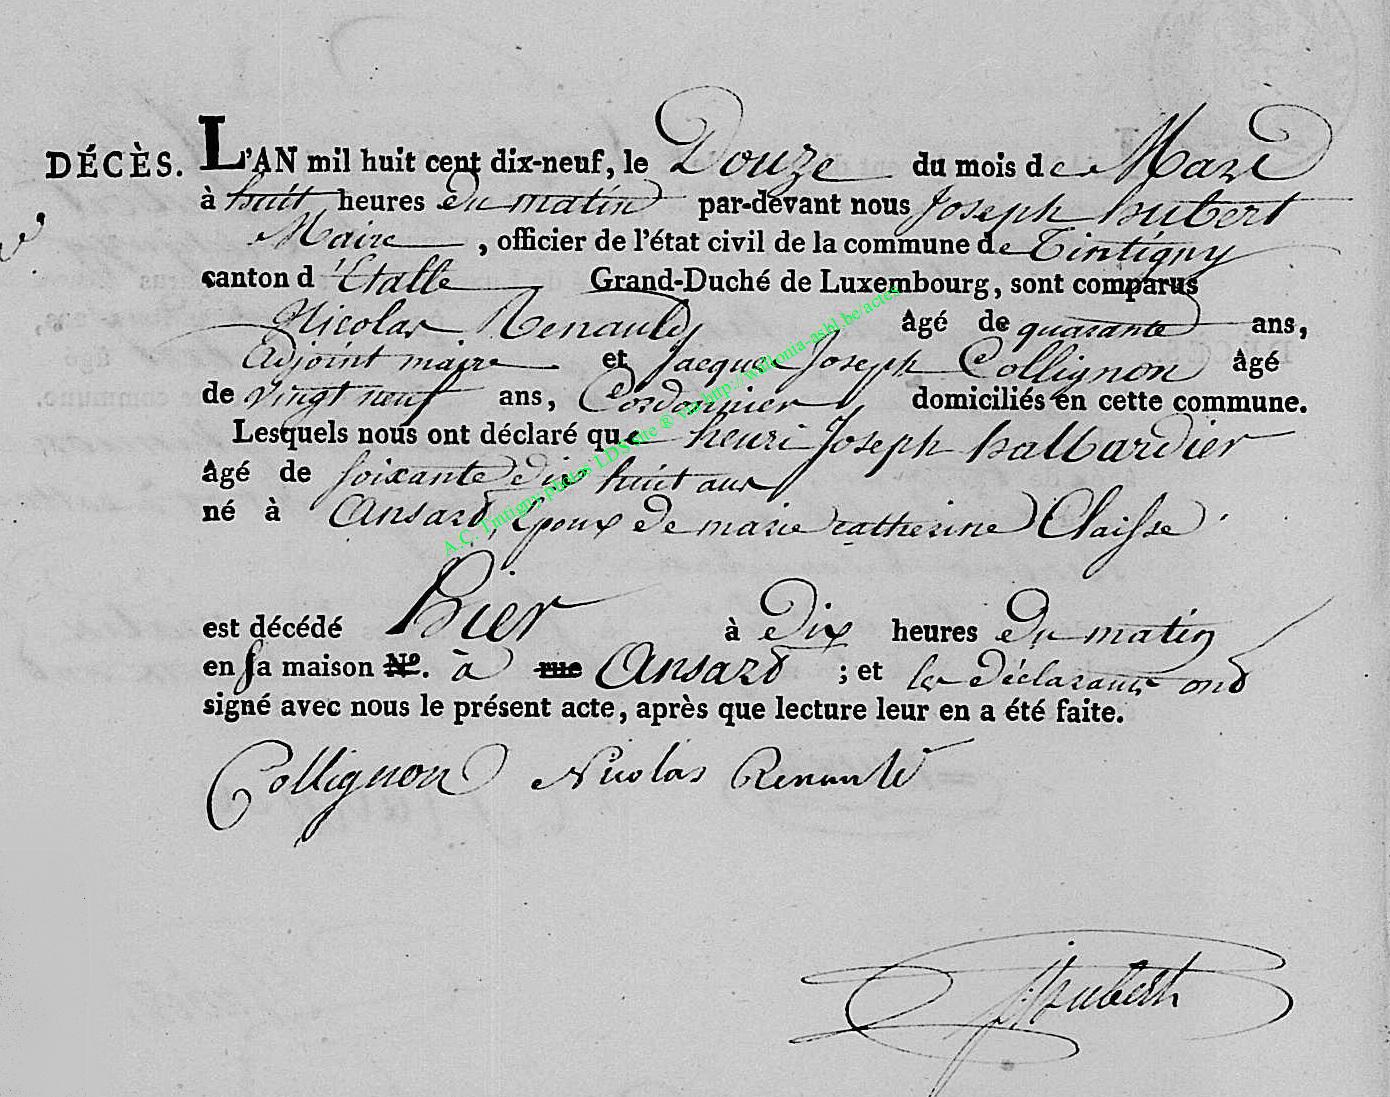 DÉCÈS. L'AN mil huit cent dix-neuf, le Douze du mois de Mars
à huit heures du matin par-devant nous Joseph hubert
Maire , officier de l'état civil de la commune de Tintigny
canton d'Etalle Grand-Duché de Luxembourg, sont comparus
Nicolas Renauld âgé de quarante ans,
adjoint maire et Jacque Joseph Collignon âgé
de vingt neuf ans, Cordonnier domiciliés en cette commune.
Lesquels nous ont déclaré que henri Joseph hallbardier
âgé de soixante dix huit ans
né à Ansard, Epoux de marie catherine Claisse
est décédé hier à Dix heures du matin
en sa maison N°. à rue Ansard ; et les déclarants ont
signé avec nous le présent acte, après que lecture leur en a été faite.
Collignon Nicolas Renauld
J: hubert
A.C. Tintigny photos LDS site ® via http://wallonia-asbl.be/actes